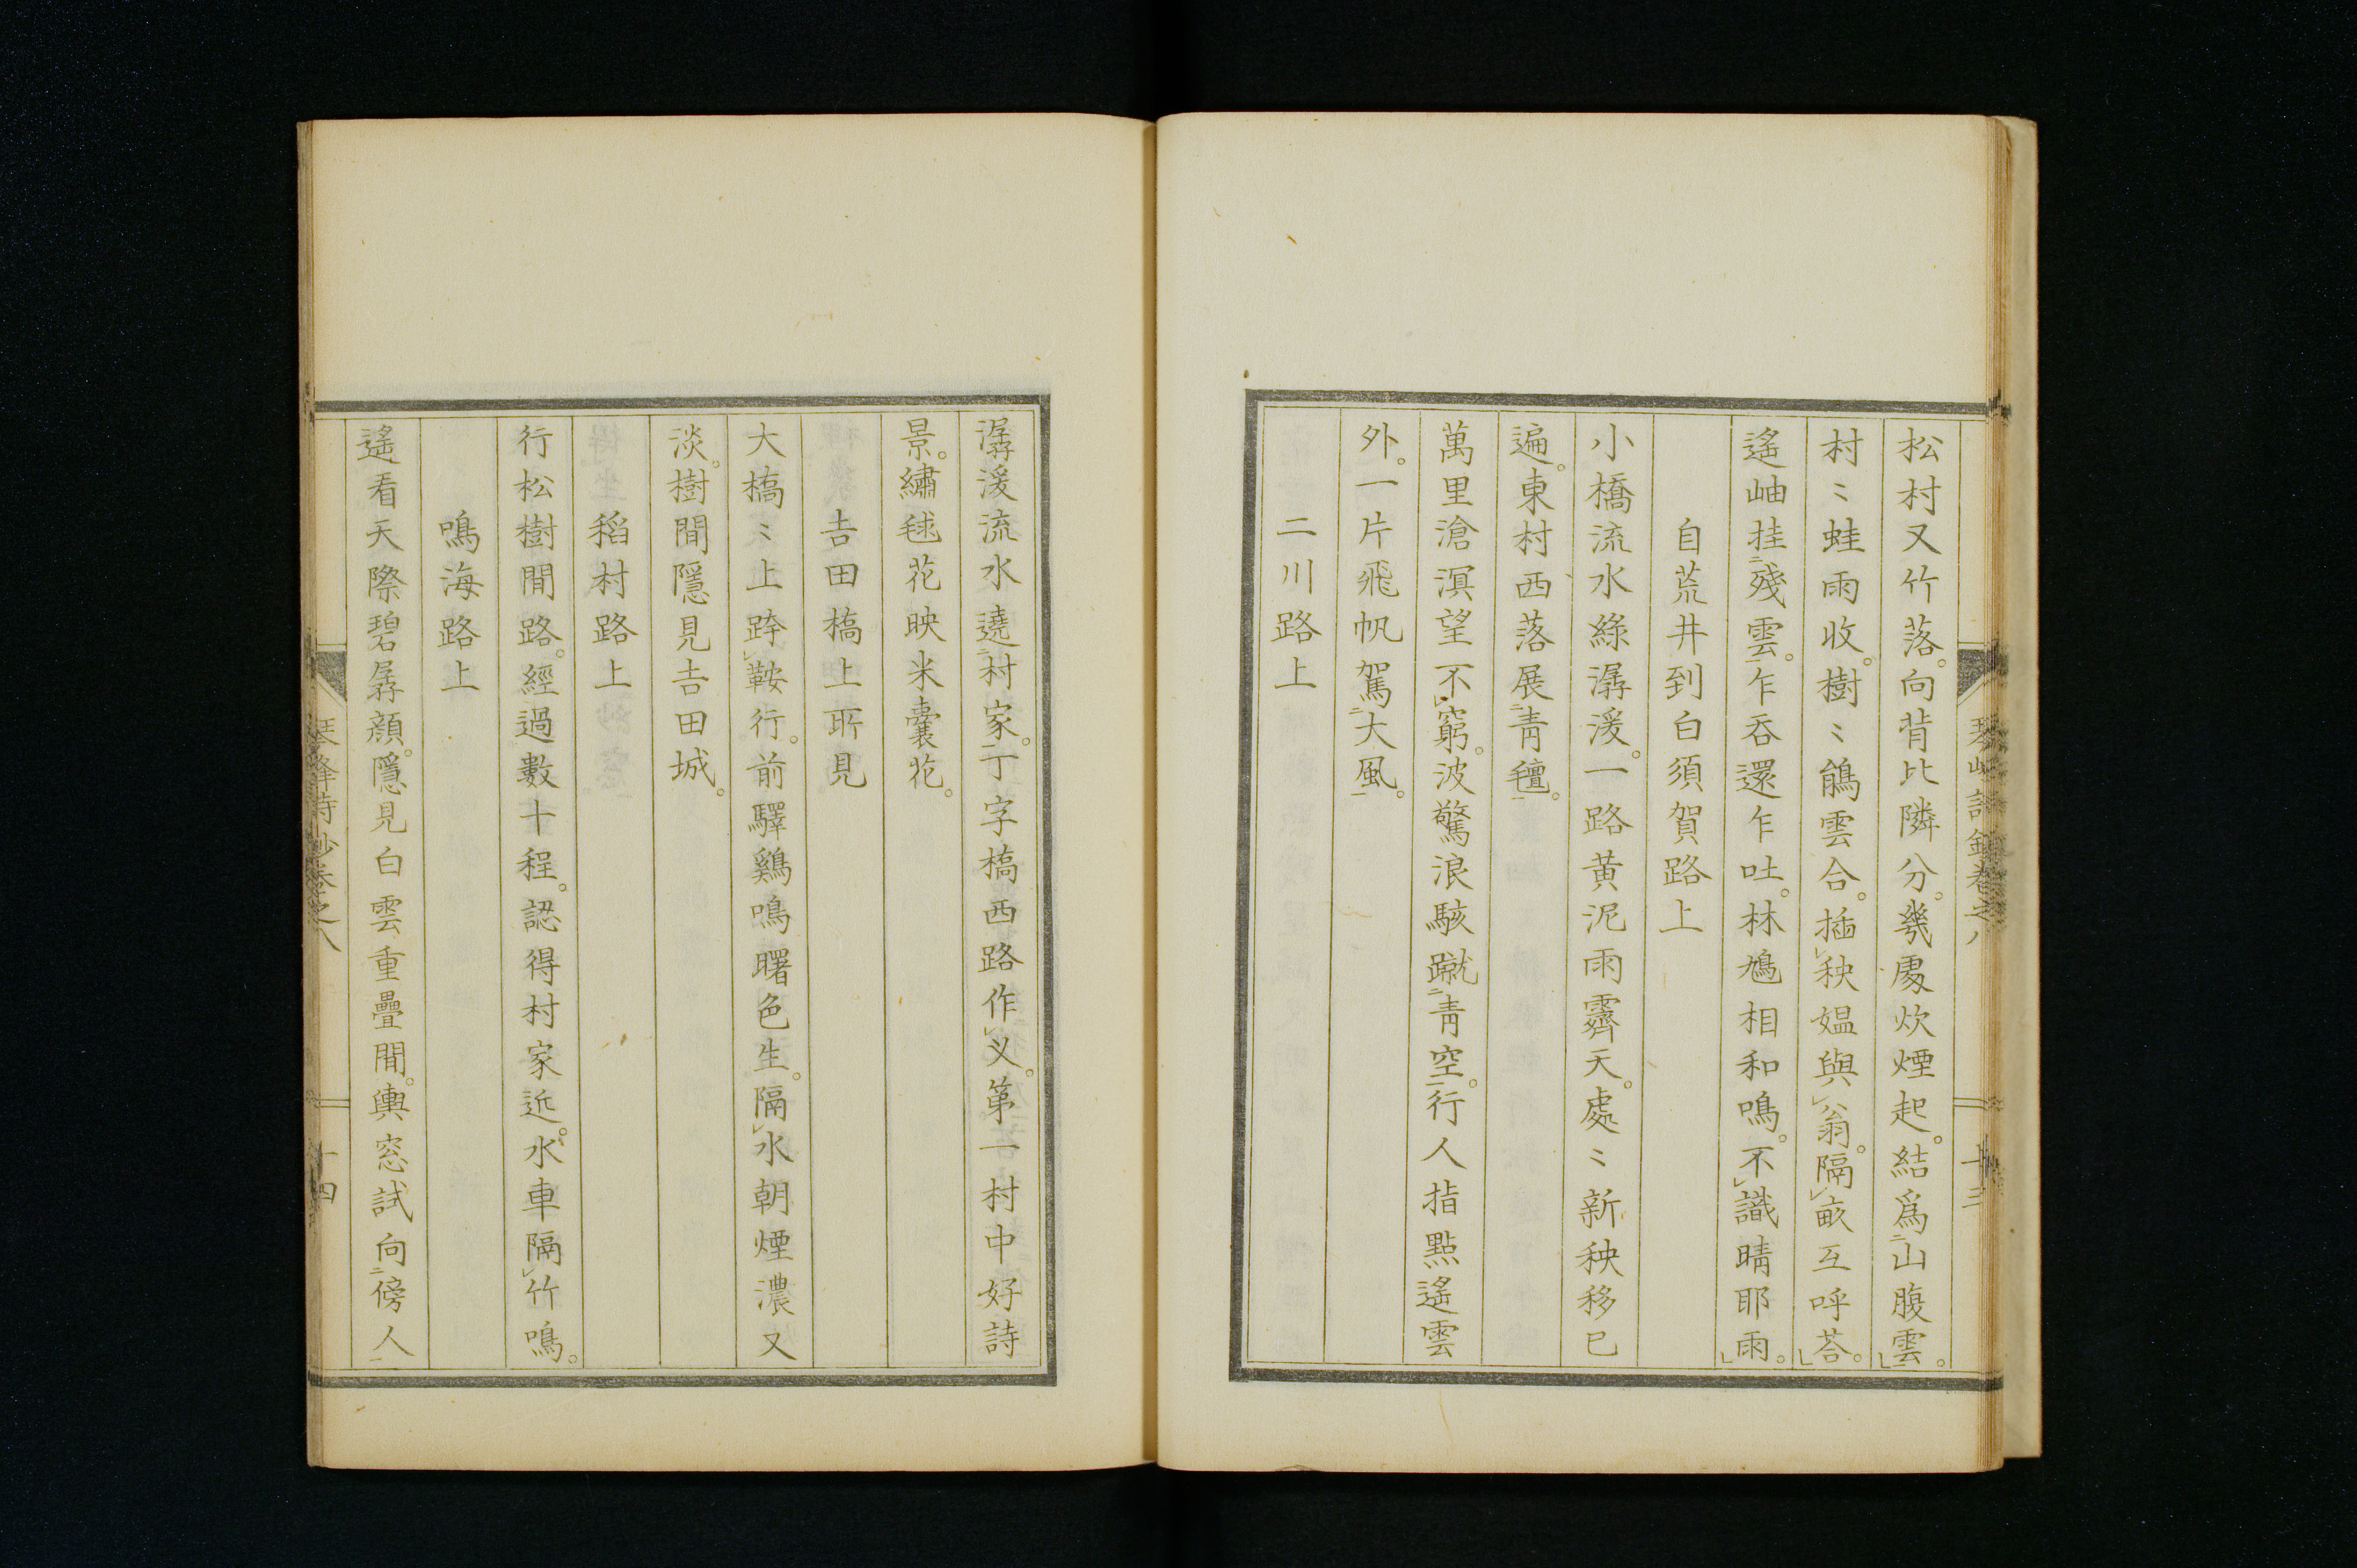 松村又竹落。向背比隣分。幾處炊煙起。結爲二山腹雲一。
村〻蛙雨收。樹〻鵃雲合。插レ秧媼與レ翁。隔レ畝互呼荅。
遙岫挂二殘雲一。乍呑還乍吐。林鳩相和鳴。不レ識晴耶雨。
自荒井到白須賀路上
小橋流水綠潺湲。一路黃泥雨霽天。處〻新秧移已
遍。東村西落展二靑氊一。
萬里滄溟望不レ窮。波驚浪駭蹴二靑空一。行人指點遙雲
外。一片飛帆駕二大風一。
二川路上
潺湲流水遶二村家一。丁字橋西路作レ义。第一村中好詩
景。繡毬花映米囊花。
吉田橋上所見
大橋〻上跨レ鞍行。前驛鷄鳴曙色生。隔レ水朝煙濃又
淡。樹間隱見吉田城。
稻村路上
行松樹間路。經過數十程。認得村家近。水車隔レ竹鳴。
鳴海路上
遙看天際碧孱顏。隱見白雲重疊間。輿窓試向二傍人一
詩鈔卷之八
十三
琴峰詩鈔卷之八
十四